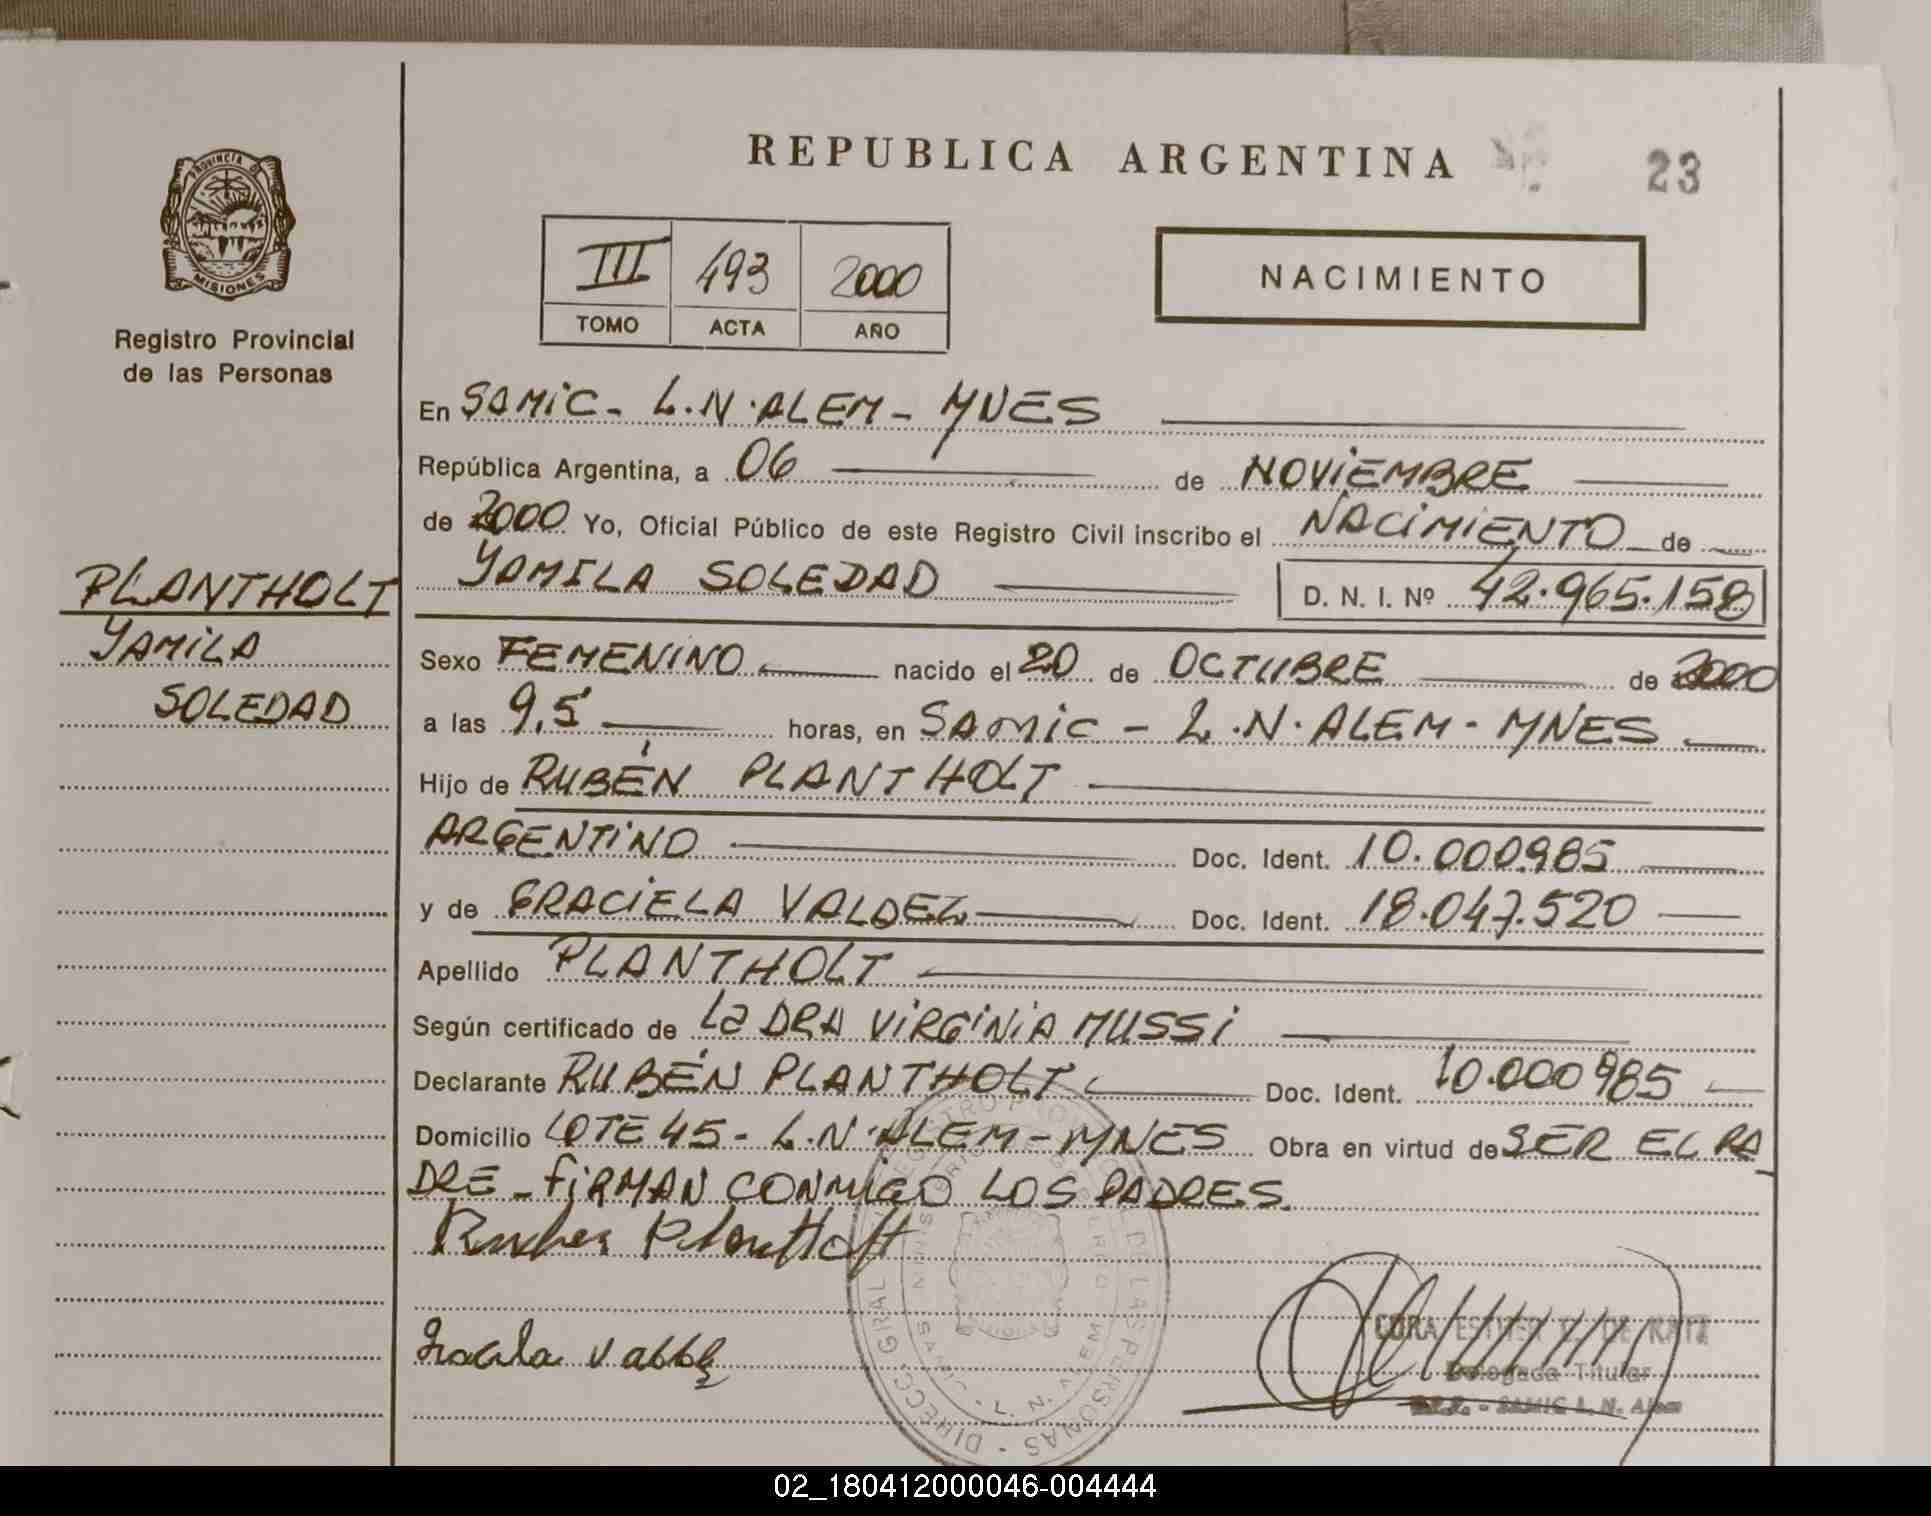 REPUBLICA ARGENTINA
23
PROVINCIA DE
MISIONES
Registro Provincial
de las Personas
III 493 2000
TOMO ACTA AÑO
NACIMIENTO
PLANTHOLT
YAMILA
SOLEDAD
En SAMIC - L.N. ALEM - MNES
República Argentina, a 06 de NOVIEMBRE
de 2000 Yo, Oficial Público de este Registro Civil inscribo el NACIMIENTO de
YAMILA SOLEDAD D. N. I. Nº 42.965.158
Sexo FEMENINO nacido el 20 de OCTUBRE de 2000
a las 9,5 horas, en SAMIC - L.N. ALEM - MNES
Hijo de RUBÉN PLANTHOLT
ARGENTINO Doc. Ident. 10.000.985
y de GRACIELA VALDEZ Doc. Ident. 18.047.520
Apellido PLANTHOLT
Según certificado de La DRA VIRGINIA MUSSI
Declarante RUBÉN PLANTHOLT Doc. Ident. 10.000985
Domicilio LOTE 45 - L.N. ALEM - MNES Obra en virtud de SER EL PA
DRE - FIRMAN CONMIGO LOS PADRES.
Ruben Plantholt
CORA ESTHER DE KATZ
Delegada Titular
SAMIC L. N. Alem
02_180412000046-004444